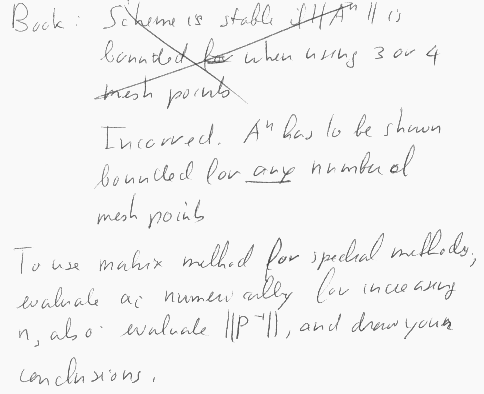 Book: Scheme is stable if ||Aⁿ|| is
bounded for when using 3 or 4
mesh points
Incorrect. Aⁿ has to be shown
bounded for any number of
mesh points
To use matrix method for spectral methods,
evaluate numerically for increasing
n, also evaluate ||P⁻¹||, and draw your
conclusions.